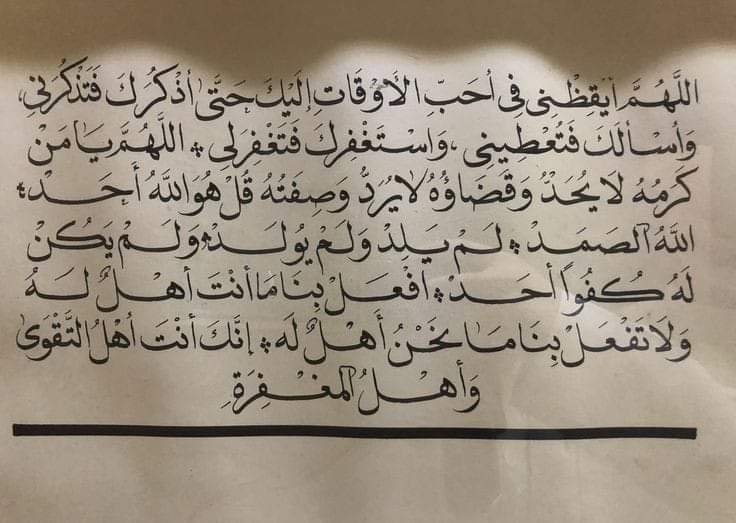 اللَّهُمَّ أَيْقِظْنِي فِي أَحَبِّ الأَوْقَاتِ إِلَيْكَ حَتَّىٰ أَذْكُرَكَ فَتَذْكُرَنِي،
وَأَسْأَلَكَ فَتُعْطِينِي، وَاسْتَغْفِرَكَ فَتَغْفِرَ لِي * اللَّهُمَّ يَا مَنْ
كَرَمُهُ لَا يُحَدُّ وَقَضَاؤُهُ لَا يُرَدُّ وَصِفَتُهُ قُلْ هُوَ اللَّهُ أَحَدٌ *
اللَّهُ الصَّمَدُ * لَمْ يَلِدْ وَلَمْ يُولَدْ * وَلَمْ يَكُنْ
لَهُ كُفُواً أَحَدٌ * افْعَلْ بِنَا مَا أَنْتَ أَهْلٌ لَهُ
وَلَا تَفْعَلْ بِنَا مَا نَحْنُ أَهْلٌ لَهُ * إِنَّكَ أَنْتَ أَهْلُ التَّقْوَىٰ
وَأَهْلُ الْمَغْفِرَةِ